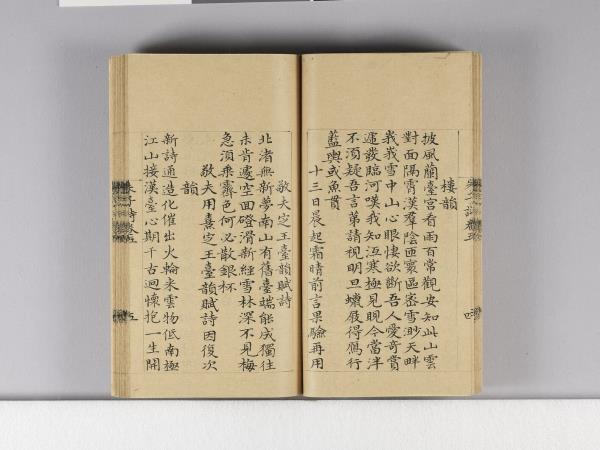 樓韻
披風蘭臺宮看雨百常觀安知此山雲
對面隔霄漢羣陰匝寰區密雪渺天畔
峩峩雪中山心眼悽欲斷吾人愛奇賞
遞發臨河嘆我知冱寒極見晛今當泮
不須疑吾言第請視明旦蠟屐得雁行
藍輿或魚貫
十三日晨起霜晴前言果驗再用
敬夫定王臺韻賦詩
北渚無新夢南山有舊臺端能成獨往
未肯遽空面磴滑新經雪林深不見梅
急須乘霽色何必散銀杯
敬夫用熹定王臺韻賦詩因復次
韻
新詩通造化催出火輪来雲物低南極
江山接漢臺心期千古迥懷抱一生開